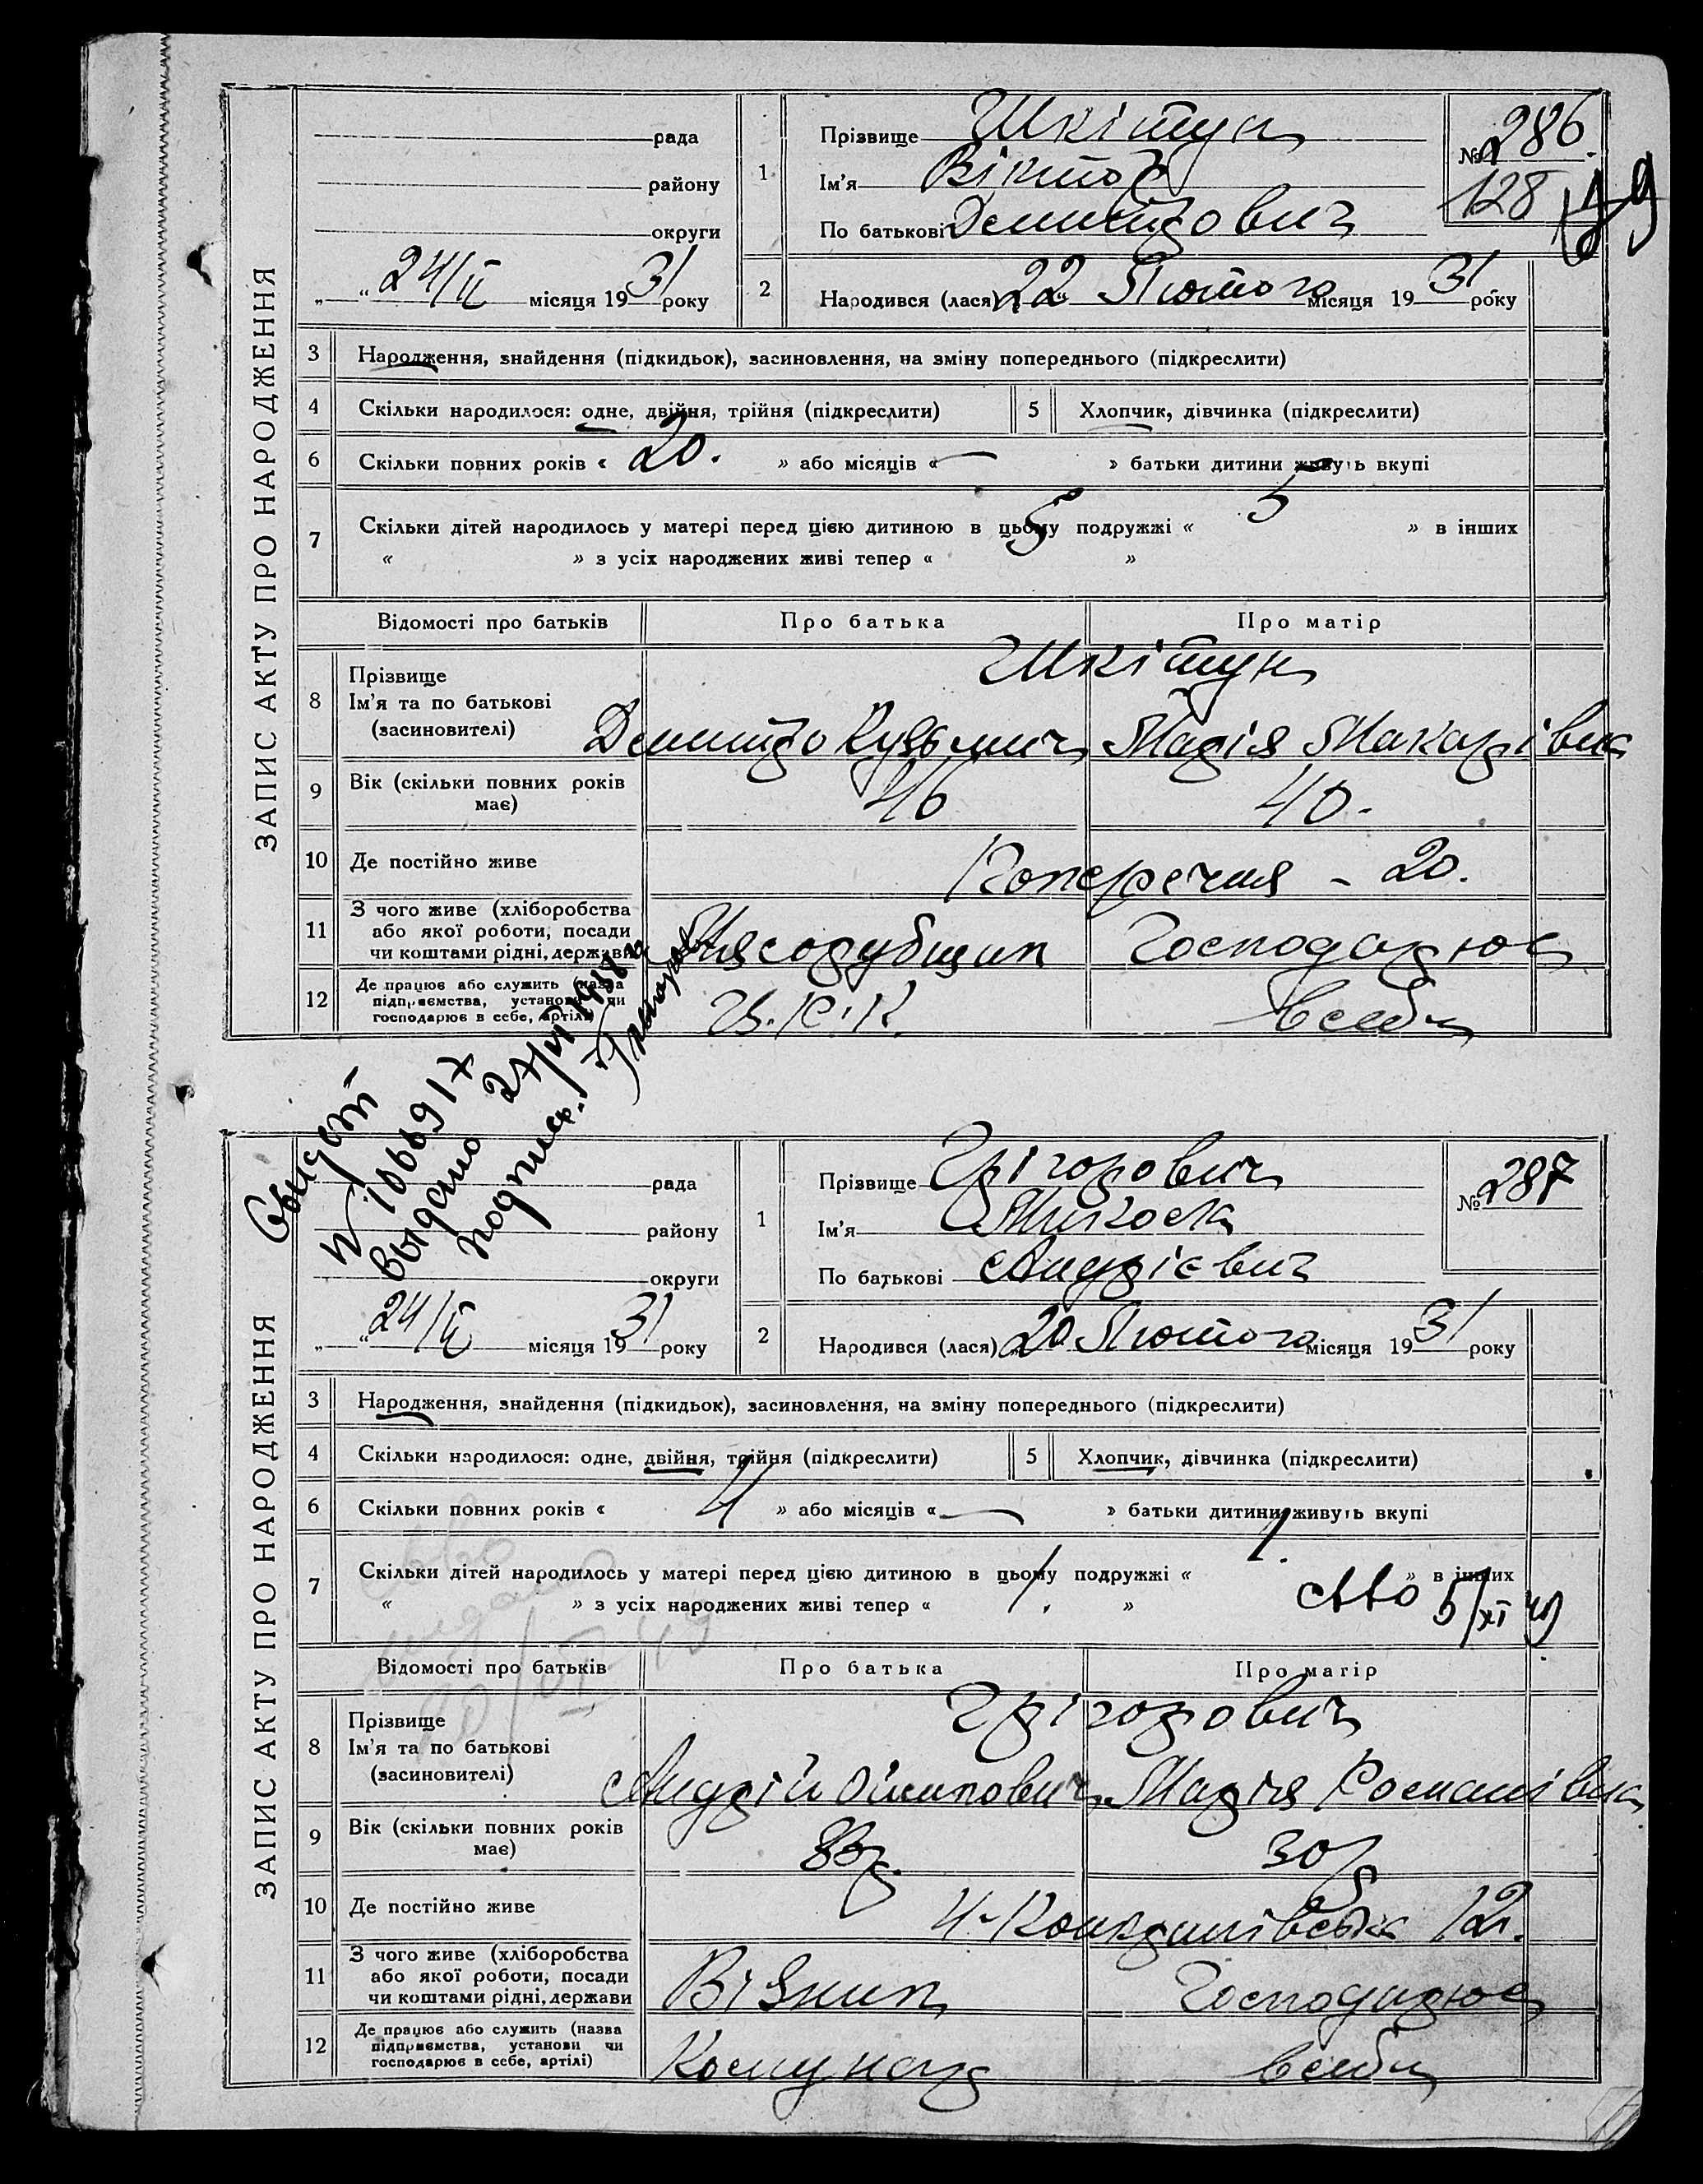 ЗАПИС АКТУ ПРО НАРОДЖЕННЯ
рада
району
округи
„ “ 24/II місяця 1931 року
1
Прізвище Шкітун
Ім’я Віктор
По батькові Демитрович
№ 286.
128
2
Народився (лася) 22 Лютого місяця 1931 року
3 Народження, знайдення (підкидьок), засиновлення, на зміну попереднього (підкреслити)
4 Скільки народилося: одне, двійня, трійня (підкреслити)
5 Хлопчик, дівчинка (підкреслити)
6 Скільки повних років « 20. » або місяців « — » батьки дитини живуть вкупі
7 Скільки дітей народилось у матері перед цією дитиною в цьому подружжі « 5 » в інших
« » з усіх народжених живі тепер « 5 »
Відомості про батьків Про батька Про матір
8 Прізвище
Ім’я та по батькові
(засиновителі)
Шкітун
Демитро Кузьмич Марія Макарівна
9 Вік (скільки повних років має) 46 40.
10 Де постійно живе Поперечня - 20.
11 З чого живе (хліборобства або якої роботи, посади чи коштами рідні, держави Мясорубщик Господарює
12 Де працює або служить (назва підприємства, установи чи господарює в себе, артілі) в себе
Свидет
№ 106917
выдано 27/VI 1948 г
подпись.
ЗАПИС АКТУ ПРО НАРОДЖЕННЯ
рада
району
округи
„ “ 24/II місяця 1931 року
1
Прізвище Грігорович
Ім’я Микола
По батькові Андрієвич
№ 287
2
Народився (лася) 20 Лютого місяця 1931 року
3 Народження, знайдення (підкидьок), засиновлення, на зміну попереднього (підкреслити)
4 Скільки народилося: одне, двійня, трійня (підкреслити)
5 Хлопчик, дівчинка (підкреслити)
6 Скільки повних років « 4 » або місяців « — » батьки дитини живуть вкупі
7 Скільки дітей народилось у матері перед цією дитиною в цьому подружжі « 1. » в інших
« » з усіх народжених живі тепер « 1. »
5/XI 49
Відомості про батьків Про батька Про матір
8 Прізвище
Ім’я та по батькові
(засиновителі)
Грігорович
Андрій Осипович Марія Романівна
9 Вік (скільки повних років має) 33р. 30р
10 Де постійно живе 12.
11 З чого живе (хліборобства або якої роботи, посади чи коштами рідні, держави Візник Господарює
12 Де працює або служить (назва підприємства, установи чи господарює в себе, артілі) Комунар в себе